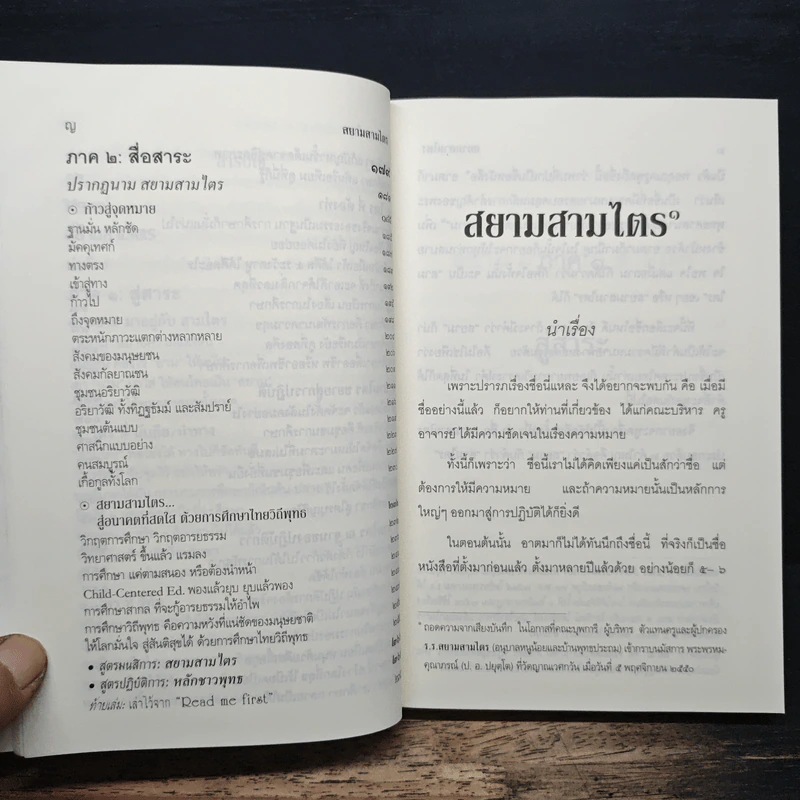 ญ
สยามสามไตร
ภาค ๒: สื่อสาระ
ปรากฏนาม สยามสามไตร
๏ ก้าวสู่จุดหมาย
ฐานมั่น หลักชัด
มัคคุเทศก์
ทางตรง
เข้าสู่ทาง
ก้าวไป
ถึงจุดหมาย
ตระหนักภาวะแตกต่างหลากหลาย
สังคมของมนุษยชน
สังคมกัลยาณชน
ชุมชนอริยาวัฒิ
อริยาวัฒิ ทั้งทิฏฐธัมม์ และสัมปราย์
ชุมชนต้นแบบ
ศาสนิกแบบอย่าง
คนสมบูรณ์
เกื้อกูลทั้งโลก
๏ สยามสามไตร...
สู่อนาคตที่สดใส ด้วยการศึกษาไทยวิถีพุทธ
วิกฤตการศึกษา วิกฤตอารยธรรม
วิทยาศาสตร์ ขึ้นแล้ว แรมลง
การศึกษา แค่ตามสนอง หรือต้องนำหน้า
Child-Centered Ed. พองแล้วยุบ ยุบแล้วพอง
การศึกษาสากล ที่จะกู้อารยธรรมให้อำไพ
การศึกษาวิถีพุทธ คือความหวังที่แน่ชัดของมนุษยชาติ
ให้โลกมั่นใจ สู่สันติสุขได้ ด้วยการศึกษาไทยวิถีพุทธ
• สูตรผนสิการ: สยามสามไตร
• สูตรปฏิบัติการ: หลักชาวพุทธ
ท้ายเล่ม: เล่าไว้จาก "Read me first"
สยามสามไตร๑
นำเรื่อง
เพราะปรารภเรื่องชื่อนี่แหละ จึงได้อยากจะพบกัน คือ เมื่อมี
ชื่ออย่างนี้แล้ว ก็อยากให้ท่านที่เกี่ยวข้อง ได้แก่คณะบริหาร ครู
อาจารย์ ได้มีความชัดเจนในเรื่องความหมาย
ทั้งนี้ก็เพราะว่า ชื่อนี้เราไม่ได้คิดเพียงแค่เป็นสักว่าชื่อ แต่
ต้องการให้มีความหมาย และถ้าความหมายนั้นเป็นหลักการ
ใหญ่ๆ ออกมาสู่การปฏิบัติได้ก็ยิ่งดี
ในตอนต้นนั้น อาตมาก็ไม่ได้ทันนึกถึงชื่อนี้ ที่จริงก็เป็นชื่อ
หนังสือที่ตั้งมาก่อนแล้ว ตั้งมาหลายปีแล้วด้วย อย่างน้อยก็ ๕-๖
๑ ถอดความจากเสียงบันทึก ในโอกาสที่คณะบุพการี ผู้บริหาร ตัวแทนครูและผู้ปกครอง
ร.ร.สยามสามไตร (อนุบาลหนูน้อยและบ้านพุทธประณต) เข้ากราบนมัสการ พระพรหม-
คุณาภรณ์ (ป. อ. ปยุตฺโต) ที่วัดญาณเวศกวัน เมื่อวันที่ ๕ พฤศจิกายน ๒๕๕๐